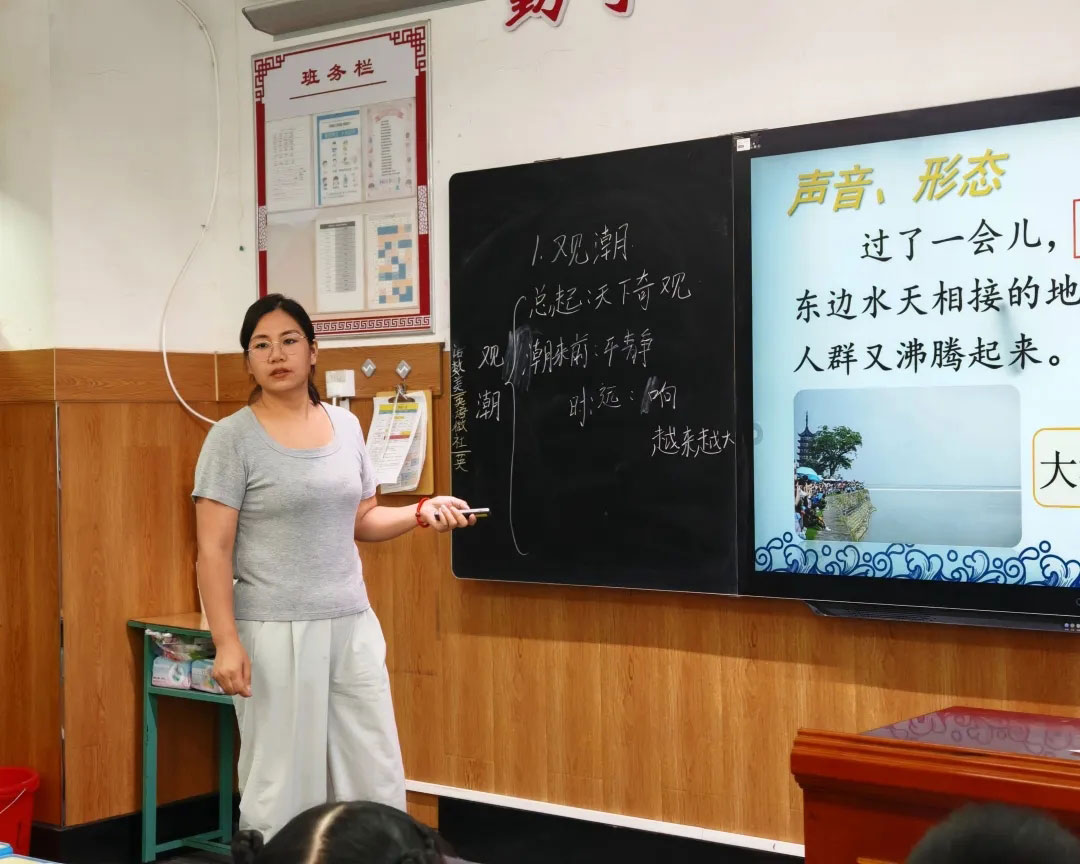 班务栏
1.观潮
总起:天下奇观
观潮
潮来前:平静
时:远:响
越来越大
语数美英语做社英
声音、形态
过了一会儿,
东边水天相接的地
人群又沸腾起来。
大